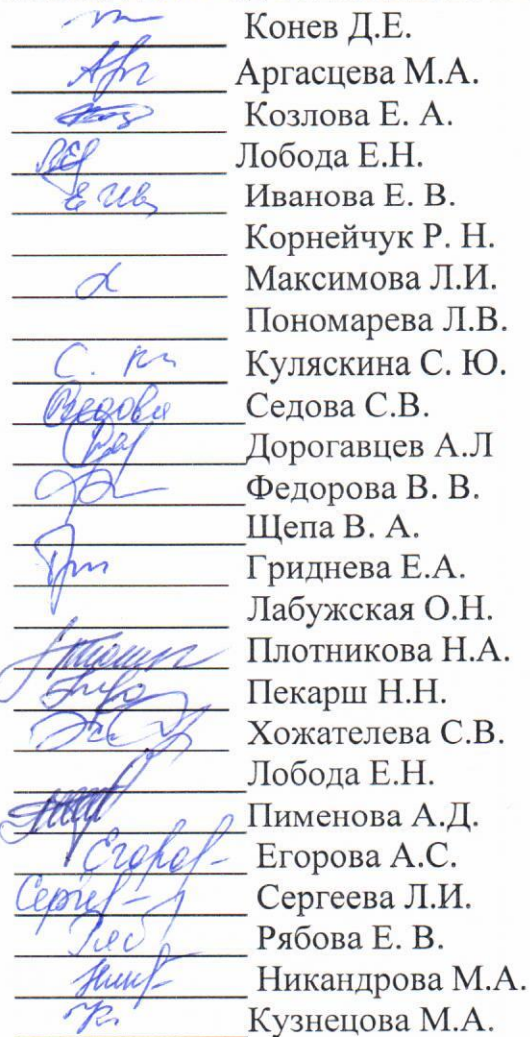 Конев Д.Е.
Аргасцева М.А.
Козлова Е. А.
Лобода Е.Н.
Е Ив Иванова Е. В.
Корнейчук Р. Н.
Максимова Л.И.
Пономарева Л.В.
С. Куляскина С. Ю.
Седова Седова С.В.
Дорогавцев А.Л
Федорова В. В.
Щепа В. А.
Гриднева Е.А.
Лабужская О.Н.
Плотникова Н.А.
Пекарш Н.Н.
Хожателева С.В.
Лобода Е.Н.
Пименова А.Д.
Егоров Егорова А.С.
Сергеева Л.И.
Ряб Рябова Е. В.
Никандрова М.А.
Кузнецова М.А.